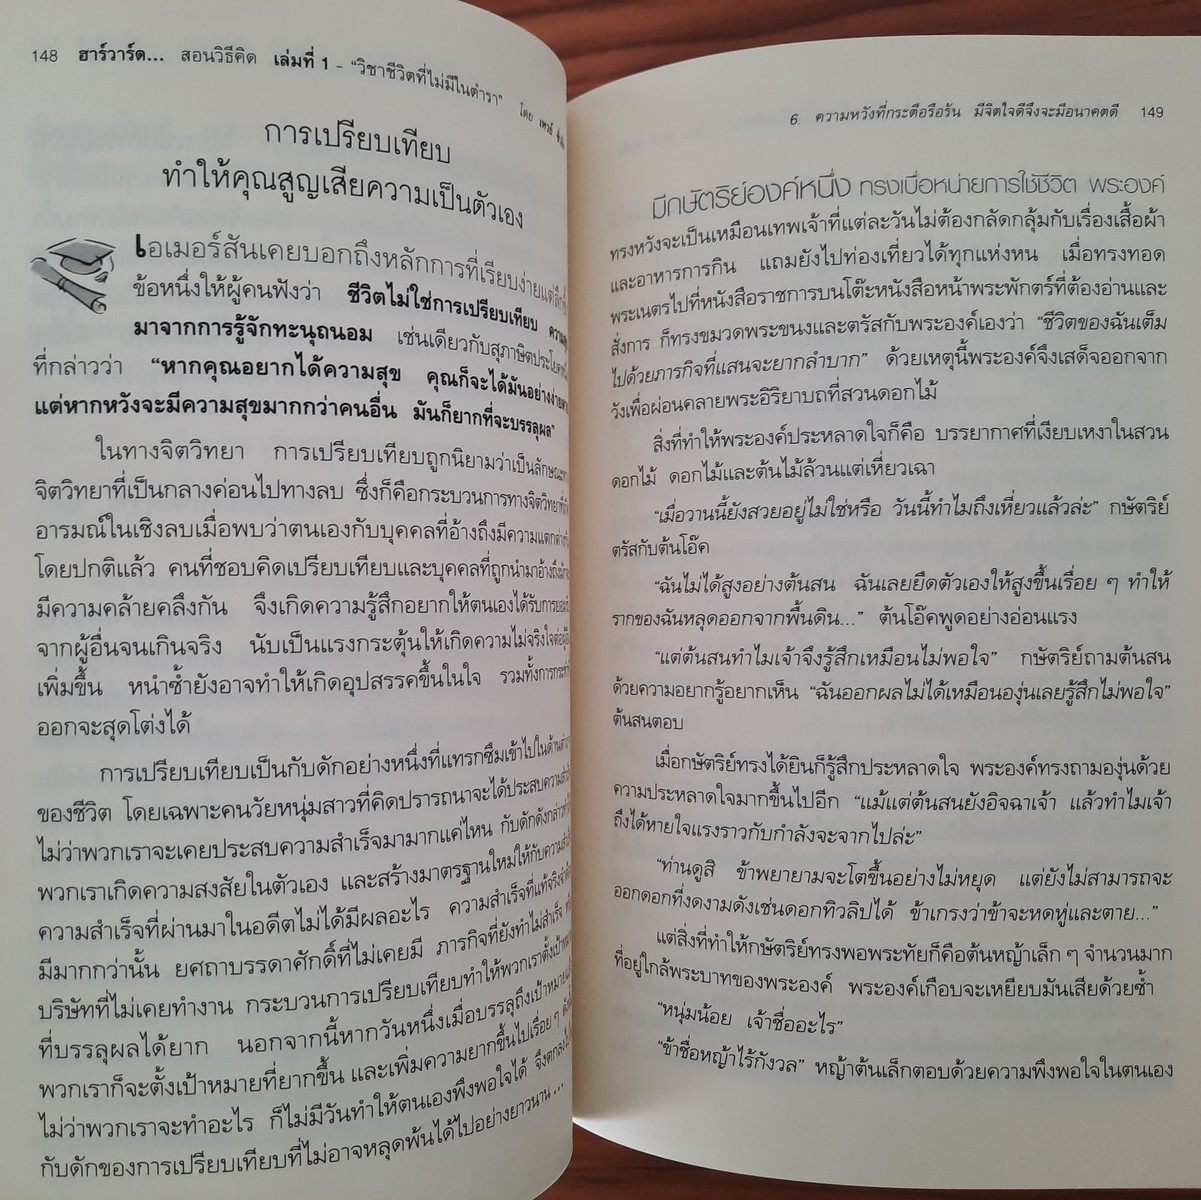 148 ฮาร์วาร์ด... สอนวิธีคิด เล่มที่ 1 - “วิชาชีวิตที่ไม่มีในตำรา” โดย
การเปรียบเทียบ
ทำให้คุณสูญเสียความเป็นตัวเอง
เอเมอร์สันเคยบอกถึงหลักการที่เรียบง่ายแต่ลึกซึ้ง
ข้อหนึ่งให้ผู้คนฟังว่า ชีวิตไม่ใช่การเปรียบเทียบ
มาจากการรู้จักทะนุถนอม เช่นเดียวกับสุภาษิตประโยค
ที่กล่าวว่า “หากคุณอยากได้ความสุข คุณก็จะได้มันอย่างง่ายดาย
แต่หากหวังจะมีความสุขมากกว่าคนอื่น มันก็ยากที่จะบรรลุผล”
ในทางจิตวิทยา การเปรียบเทียบถูกนิยามว่าเป็นลักษณะทาง
จิตวิทยาที่เป็นกลางค่อนไปทางลบ ซึ่งก็คือกระบวนการทางจิตวิทยาที่เกิด
อารมณ์ในเชิงลบเมื่อพบว่าตนเองกับบุคคลที่อ้างถึงมีความแตกต่างกัน
โดยปกติแล้ว คนที่ชอบคิดเปรียบเทียบและบุคคลที่ถูกนำมาอ้างถึงมักจะ
มีความคล้ายคลึงกัน จึงเกิดความรู้สึกอยากให้ตนเองได้รับการยอมรับ
จากผู้อื่นจนเกินจริง นับเป็นแรงกระตุ้นให้เกิดความไม่จริงใจต่อผู้อื่น
เพิ่มขึ้น หนำซ้ำยังอาจทำให้เกิดอุปสรรคขึ้นในใจ รวมทั้งการกระทำที่
ออกจะสุดโต่งได้
การเปรียบเทียบเป็นกับดักอย่างหนึ่งที่แทรกซึมเข้าไปในด้านต่างๆ
ของชีวิต โดยเฉพาะคนวัยหนุ่มสาวที่คิดปรารถนาจะได้ประสบความสำเร็จ
ไม่ว่าพวกเราจะเคยประสบความสำเร็จมามากแค่ไหน กับดักดังกล่าว
พวกเราเกิดความสงสัยในตัวเอง และสร้างมาตรฐานใหม่ให้กับความสำเร็จ
ความสำเร็จที่ผ่านมาในอดีตไม่ได้มีผลอะไร ความสำเร็จที่แท้จริง
มีมากกว่านั้น ยศถาบรรดาศักดิ์ที่ไม่เคยมี ภารกิจที่ยังทำไม่สำเร็จ
บริษัทที่ไม่เคยทำงาน กระบวนการเปรียบเทียบทำให้พวกเราตั้งเป้าหมาย
ที่บรรลุผลได้ยาก นอกจากนี้หากวันหนึ่งเมื่อบรรลุถึงเป้าหมายแล้ว
พวกเราก็จะตั้งเป้าหมายที่ยากขึ้น และเพิ่มความยากขึ้นไปเรื่อย ๆ
ไม่ว่าพวกเราจะทำอะไร ก็ไม่มีวันทำให้ตนเองพึงพอใจได้ จึงตกลง
กับดักของการเปรียบเทียบที่ไม่อาจหลุดพ้นได้ไปอย่างยาวนาน...
6. ความหวังที่กระตือรือร้น มีจิตใจดีจึงจะมีอนาคตดี 149
มีกษัตริย์องค์หนึ่ง ทรงเบื่อหน่ายการใช้ชีวิต พระองค์
ทรงหวังจะเป็นเหมือนเทพเจ้าที่แต่ละวันไม่ต้องกลัดกลุ้มกับเรื่องเสื้อผ้า
และอาหารการกิน แถมยังไปท่องเที่ยวได้ทุกแห่งหน เมื่อทรงทอด
พระเนตรไปที่หนังสือราชการบนโต๊ะหนังสือหน้าพระพักตร์ที่ต้องอ่านและ
สั่งการ ก็ทรงขมวดพระขนงและตรัสกับพระองค์เองว่า “ชีวิตของฉันเต็ม
ไปด้วยภารกิจที่แสนจะยากลำบาก” ด้วยเหตุนี้พระองค์จึงเสด็จออกจาก
วังเพื่อผ่อนคลายพระอิริยาบถที่สวนดอกไม้
สิ่งที่ทำให้พระองค์ประหลาดใจก็คือ บรรยากาศที่เงียบเหงาในสวน
ดอกไม้ ดอกไม้และต้นไม้ล้วนแต่เหี่ยวเฉา
“เมื่อวานนี้ยังสวยอยู่ไม่ใช่หรือ วันนี้ทำไมถึงเหี่ยวแล้วล่ะ” กษัตริย์
ตรัสกับต้นโอ๊ค
“ฉันไม่ได้สูงอย่างต้นสน ฉันเลยยืดตัวเองให้สูงขึ้นเรื่อย ๆ ทำให้
รากของฉันหลุดออกจากพื้นดิน...” ต้นโอ๊คพูดอย่างอ่อนแรง
“แต่ต้นสนทำไมเจ้าจึงรู้สึกเหมือนไม่พอใจ” กษัตริย์ถามต้นสน
ด้วยความอยากรู้อยากเห็น “ฉันออกผลไม่ได้เหมือนองุ่นเลยรู้สึกไม่พอใจ”
ต้นสนตอบ
เมื่อกษัตริย์ทรงได้ยินก็รู้สึกประหลาดใจ พระองค์ทรงถามองุ่นด้วย
ความประหลาดใจมากขึ้นไปอีก “แม้แต่ต้นสนยังอิจฉาเจ้า แล้วทำไมเจ้า
ถึงได้หายใจแรงราวกับกำลังจะจากไปล่ะ”
“ท่านดูสิ ข้าพยายามจะโตขึ้นอย่างไม่หยุด แต่ยังไม่สามารถจะ
ออกดอกที่งดงามดังเช่นดอกทิวลิปได้ ข้าเกรงว่าข้าจะหดหู่และตาย...”
แต่สิ่งที่ทำให้กษัตริย์ทรงพอพระทัยก็คือต้นหญ้าเล็ก ๆ จำนวนมาก
ที่อยู่ใกล้พระบาทของพระองค์ พระองค์เกือบจะเหยียบมันเสียด้วยซ้ำ
“หนุ่มน้อย เจ้าชื่ออะไร”
“ข้าชื่อหญ้าไร้กังวล” หญ้าต้นเล็กตอบด้วยความพึงพอใจในตนเอง